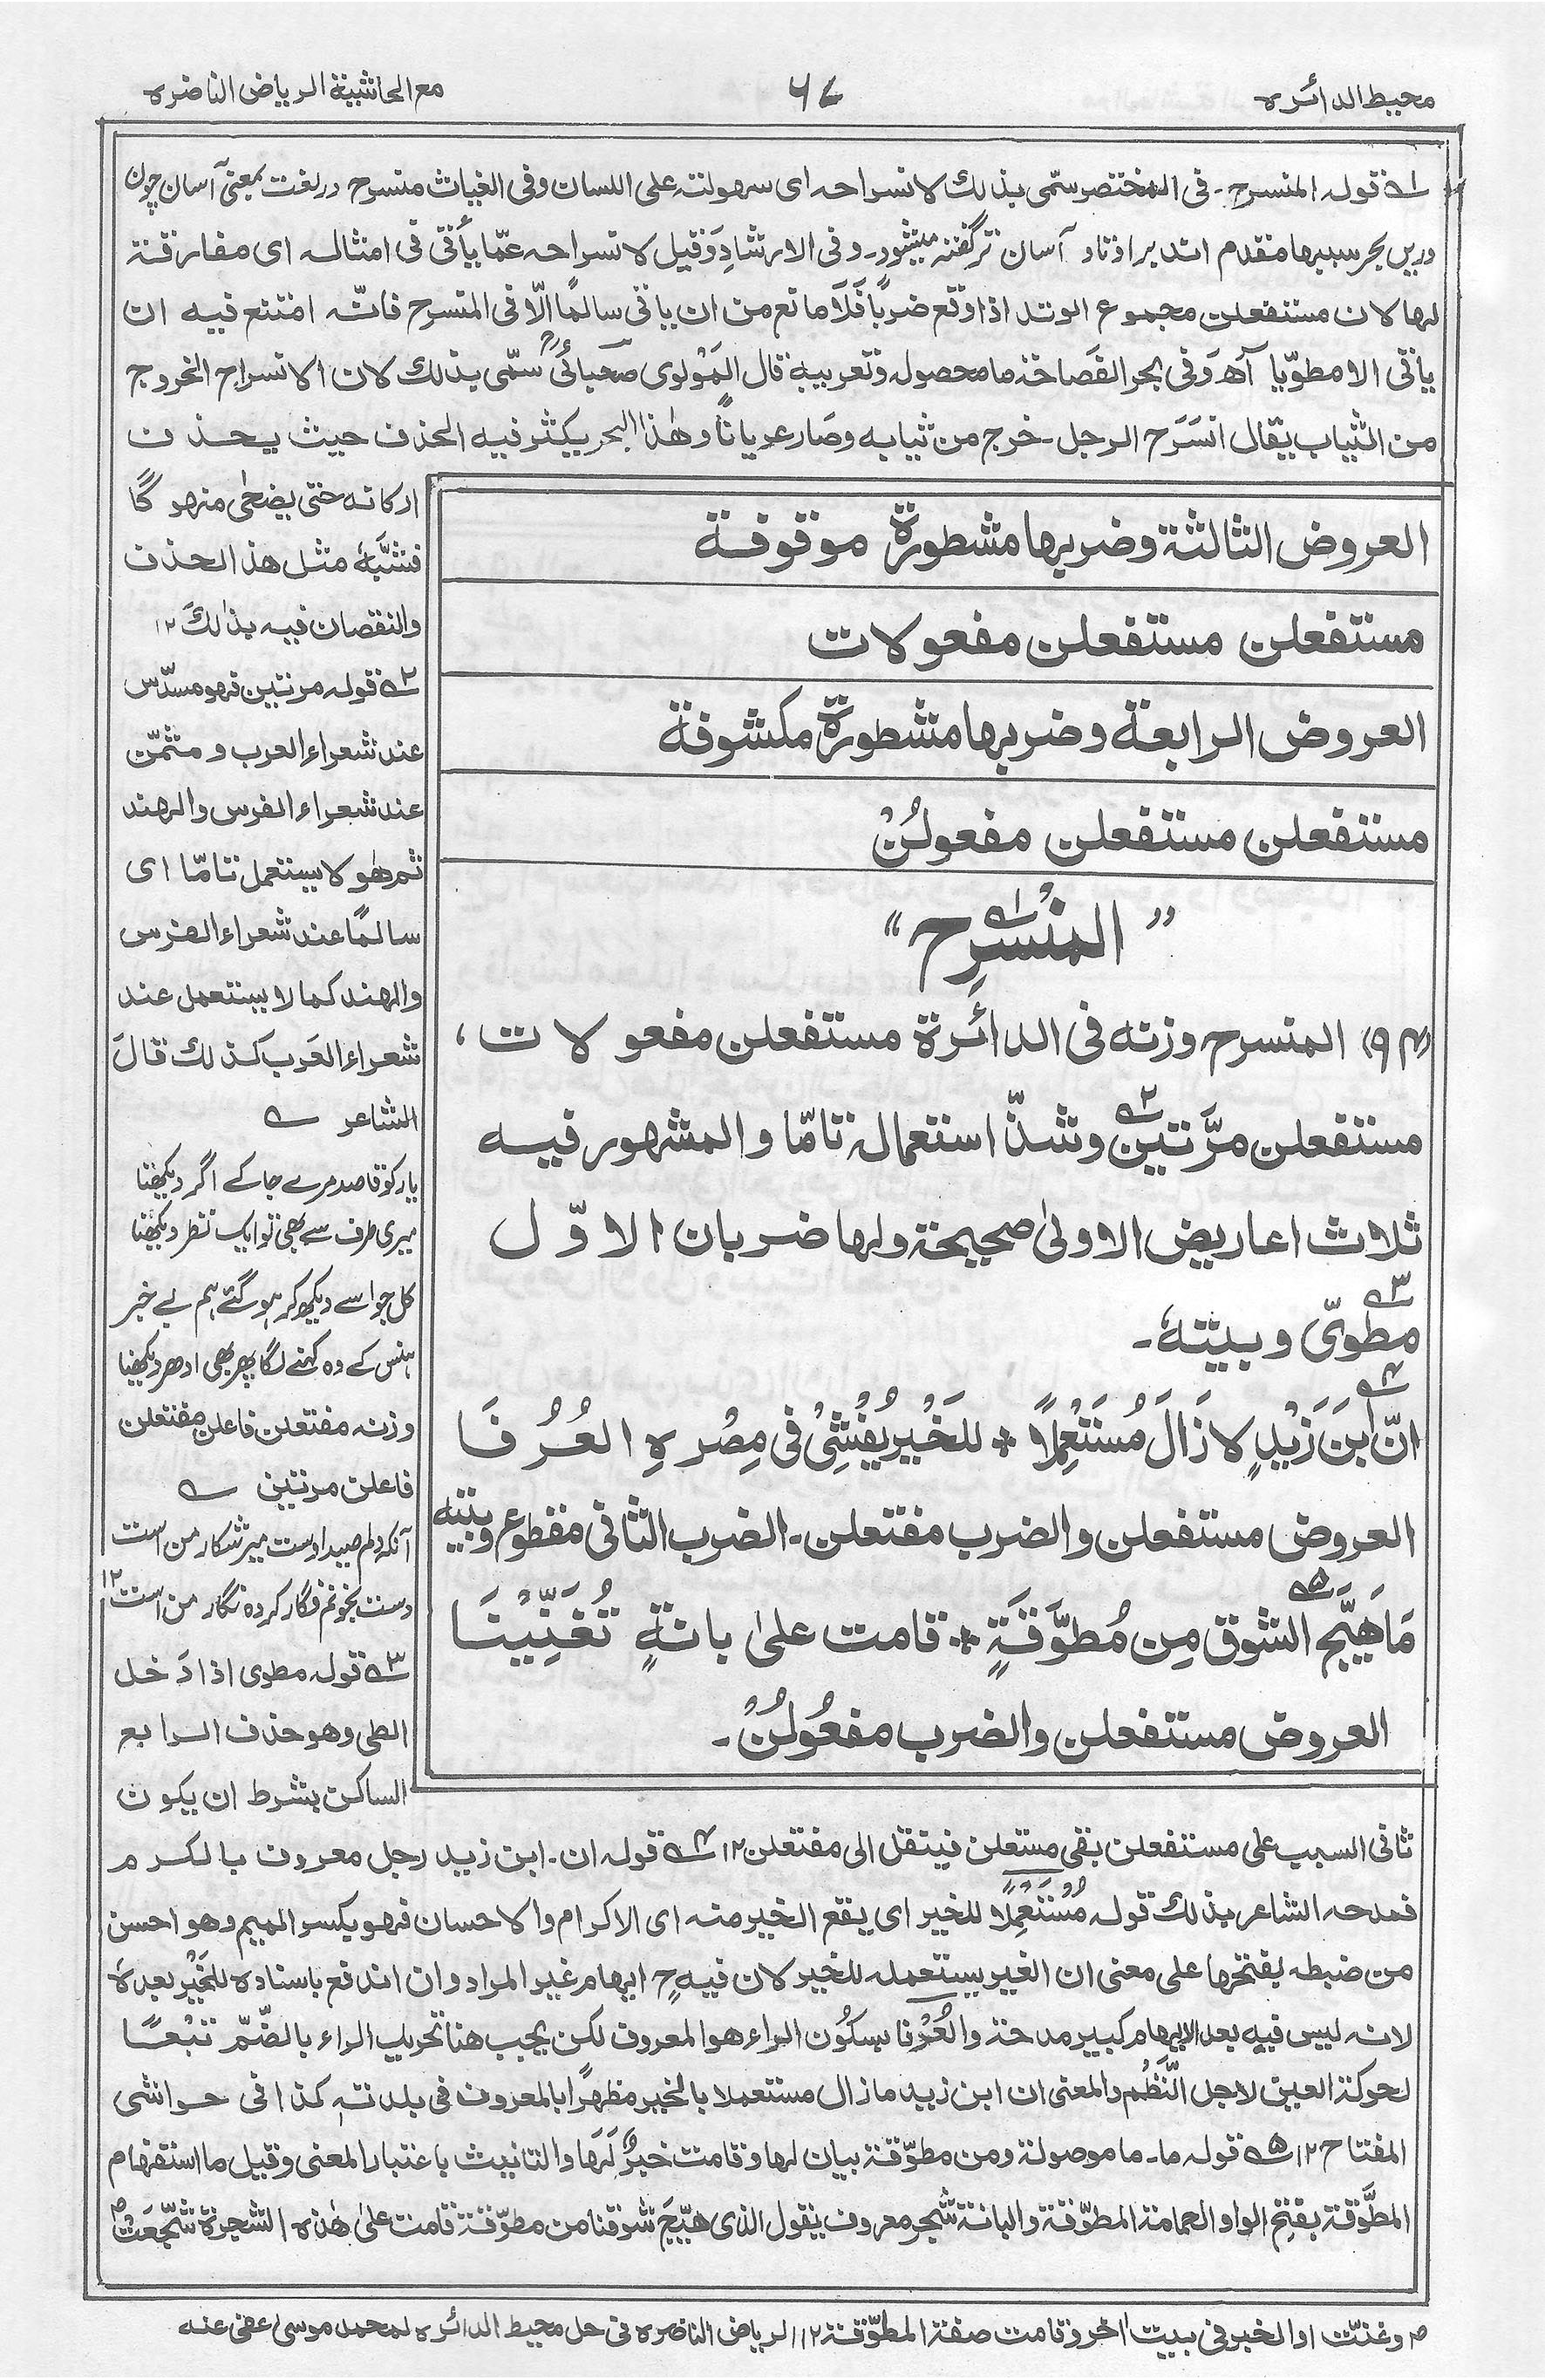 محيط الدائره
٦٧
مع الحاشية الرياض الناضره
١ے قوله المنسرح۔ فى المختصر سمّى بذلك لانسراحه اى سهولته على اللسان وفى الغياث منسرح در لغت بمعنى آسان چون
دريں بحر سببها مقدم اند بر اوتاد آسان تر گفته ميشود۔ وفى الارشادِ وَقيل لانسراحه عمّا يأتى فى امثاله اى مفارقته
لها لان مستفعلن مجموع الوتد اذا وقع ضربًا فَلَا مانع من ان ياتى سالمًا الّا فى المنسرح فانّه امتنع فيه ان
ياتى الا مطويّا آھ وَفى بحر الفَصاحة ما محصوله وتعريبه قال المَوْلوى صهبائىؒ سُمّى بذلك لان الانسراح الخروج
من الثياب يقال انسَرَح الرجل۔ خرج من ثيابه وصَار عريانًا وهٰذا البحر يكثر فيه الحذف حيث يحذف
اركانه حتى يضحٰى منهوكًا
فشبَّهَ مثل هذ الحذف
والنقصان فيه بذٰلكَ ١٢
٢ے قوله مرتين فهو مسدّس
عند شعراء العرب و مثمّن
عند شعراء الفرس والهند
ثم هٰو لا يستعمل تامّا اى
سالمًا عند شعراء الفرس
والهند كما لا يستعمل عند
شعراء العَرب كذلك قالَ
الشاعر ؎
يار كو قاصد مرے جا كے اگر ديكھنا
ميرى طرف سے بھى تو ايک نظر ديكھنا
كل جو اسے ديكھ كر ہو گئے ہم بے خبر
ہنس كے وه كہنے لگا پھر بھى ادھر ديكھنا
وزنه مفتعلن فاعلن مفتعلن
فاعلن مرتين ؎
آنكه دلم صيد اوست مير شكار من است
دست بخونم نگار كرده نگار من است ١٢
٣ے قوله مطوى اذا دَخل
الطى وهو حذف الرابع
الساكن بشرط ان يكون
العروض الثالثة وضربها مشطورة موقوفة
مستفعلن مستفعلن مفعولات
العروض الرابعة وضربها مشطورة مكشوفة
مستفعلن مستفعلن مفعولُنْ
” المنْسرِح “
(٩٤) المنسرح وزنه فى الدائرة مستفعلن مفعولات،
مستفعلن مرَّتين وشذّ استعماله تامّا والمشهور فيه
ثلاث اعاريض الاولىٰ صحيحة ولها ضربان الاوّل
مطوىّ وبيتهٗ۔
انّ ابنَ زَيْدٍ لا زَالَ مُسْتَعْمِلًا * للخَيْرِ يُفْشِىْ فى مِصْرِهِ العُرُفَا
العروض مستفعلن والضرب مفتعلن۔ الضرب الثانى مقطوع وبيته
مَا هَيَّجَ الشوق مِن مُطوَّقَةٍ * قامت علىٰ بانةٍ تُغَنِّيْنَا
العروض مستفعلن والضرب مفعُولُنْ۔
ثانى السبب على مستفعلن بقى مستعلن فينتقل الى مفتعلن ١٢ ٤ے قوله ان۔ ابن زيد رجل معروف بالكرم
فمدحه الشاعر بذلك قوله مُسْتَعْمِلًا للخير اى يقع الخير منه اى الاكرام والاحسان فهو بكسر الميم وهو احسن
من ضبطه بفتحها على معنى ان الغير يستعمله للخير لان فيه ح ايهام غير المراد وان اندفع باسناده للخَيْر بعده
لانه ليس فيه بعد الايهام كبير مدحة والعُرْفا بسكُون الراء هو المعروف لكن يجب هنا تحريك الراء بالضّم تبْعًا
لحركة العين لاجل النَّظْم والمعنى ان ابن زيد ما زال مستعملا بالخير مظهرًا بالمعروف فى بلدته كذا فى حواشى
المفتاح ١٢ ٥ے قوله ما۔ ما موصولة ومن مطوّقة بيان لها وقامت خبرٌ لَهَا والتانيث باعتبار المعنى وقيل ما استفهام
المطَوَّقة بفتح الواو الحمامة المطوّقة والبانة شَجر معروف يقول الذى هَيَّجَ شوقنا من مطوّقة قامت علىٰ هٰذه الشجرة
وغنّت او الخبر فى بيت اٰخر وقامت صفة المطوّقة ١٢ الرياض الناضره فى حل محيط الدائره لمحمد موسىٰ عفى عنه